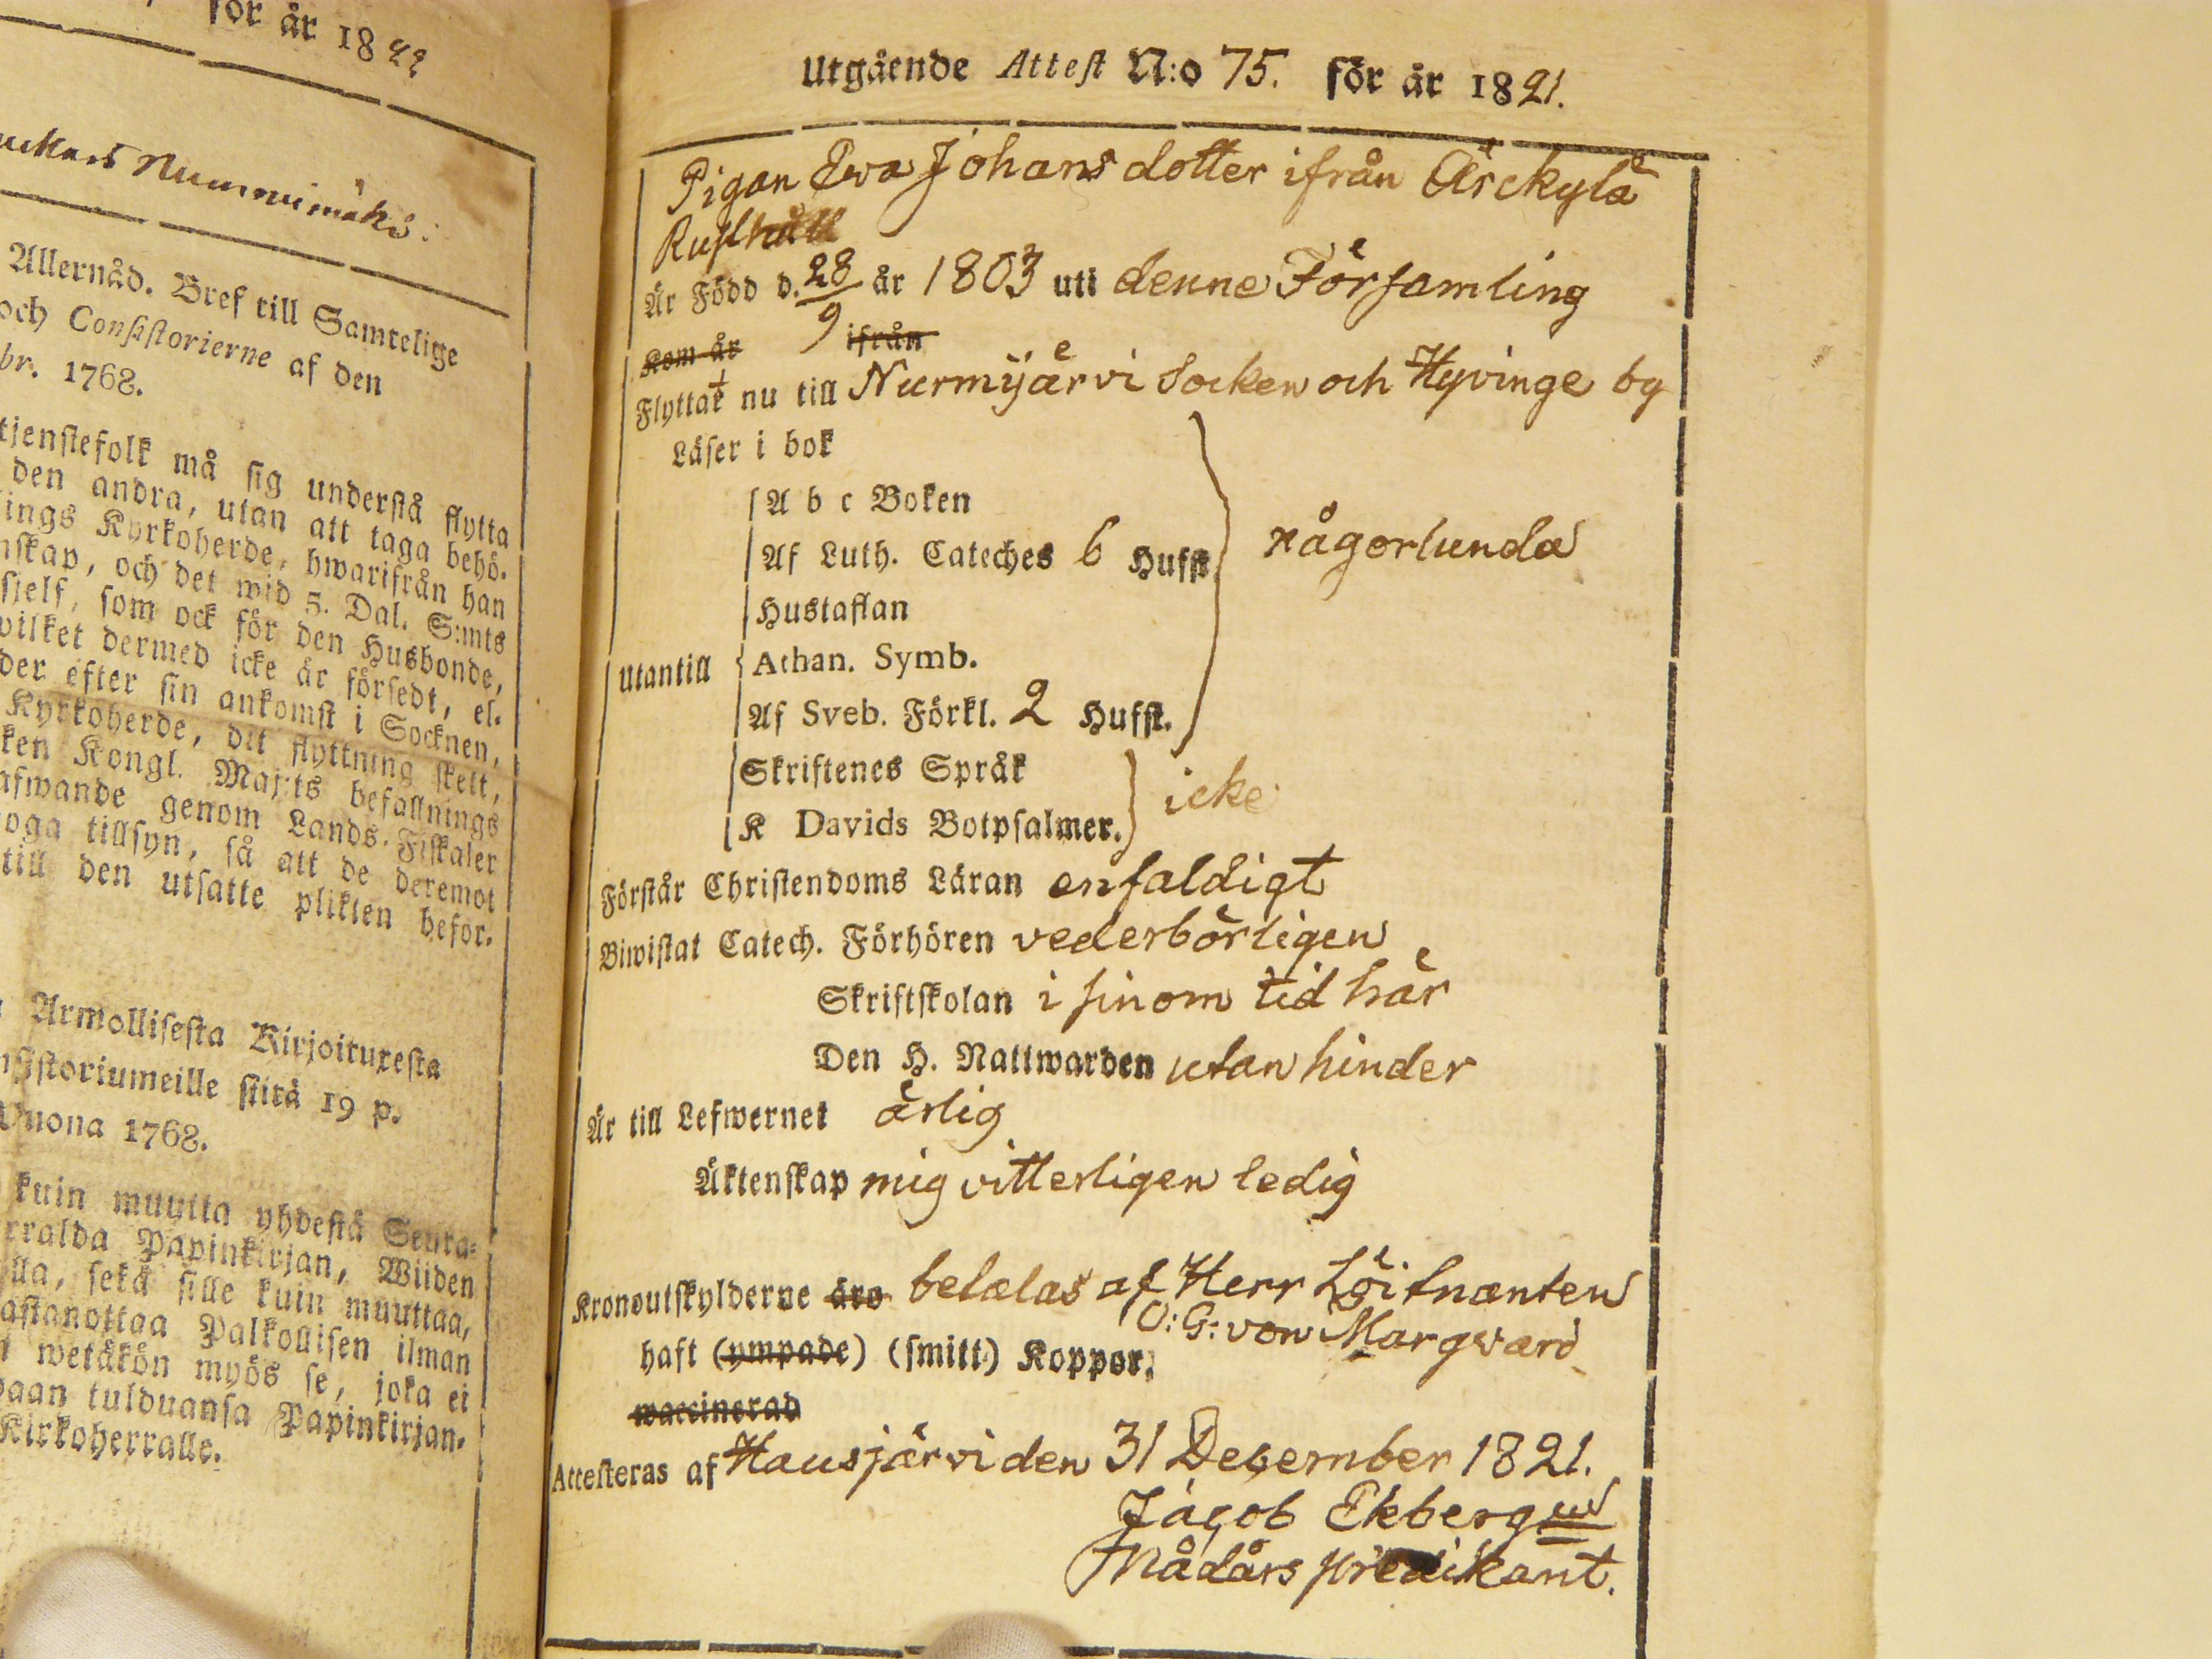 för år 1822
Nummimäki.
Allernåd. Bref till Samtelige
och Consistorierne af den
br. 1768.
tjenstefolk må sig understå flytta
den andra, utan att taga behö-
ings Kyrkoherde, hwarifrån han
nskap, och det wid 5. Dal. S:mts
sjelf, som ock för den Husbonde,
vilket dermed icke är försedt, el-
der efter sin ankomst i Socknen,
Kyrkoherde, dit flyttning skett,
ken Kongl. Maj:ts befallnings
afwande genom Lands-Fiskaler
oga tillsyn, så att de deremot
till den utsatte plikten befor-
Armollisesta Kirjoituxesta
nsistoriumeille siitä 19 p.
Vuona 1768.
kuin muutta yhdestä Seura-
rralda Papinkirjan, Wiiden
lla, sekä sille kuin muuttaa,
astanottaa Palkollisen ilman
i wetäkön myös se, joka ei
paan tulduansa Papinkirjan-
Kirkoherralle.
Utgående Attest N:o 75. för år 1821.
Pigan Ewa Johansdotter ifrån Ärckylä
Rusthåll
Är Född d. 28/9 år 1803 uti denne Församling
Kom år ifrån
Flyttat nu till Nurmijärvi Socken och Hyvinge by
Läser i bok
A b c Boken
Af Luth. Cateches 6 Hufst. någorlunda
Hustaflan
Utantill Athan. Symb.
Af Sveb. Förkl. 2 Hufst.
Skriftenes Språk
icke
K Davids Botpsalmer.
Förstår Christendoms Läran enfaldigt
Biwistat Catech. Förhören vederbörligen
Skriftskolan i sinom tid här
Den H. Nattwarden utan hinder
Är till Lefwernet ärlig
Äktenskap mig vitterligen ledig
Kronoutskylderne äro betalas af Herr Löitnanten
O: G: von Marqvard
haft (ympade) (smitt-) Koppor,
waccinerad
Attesteras af Hausjärvi den 31 December 1821.
Jacob Ekberg
Nådårs predikant.